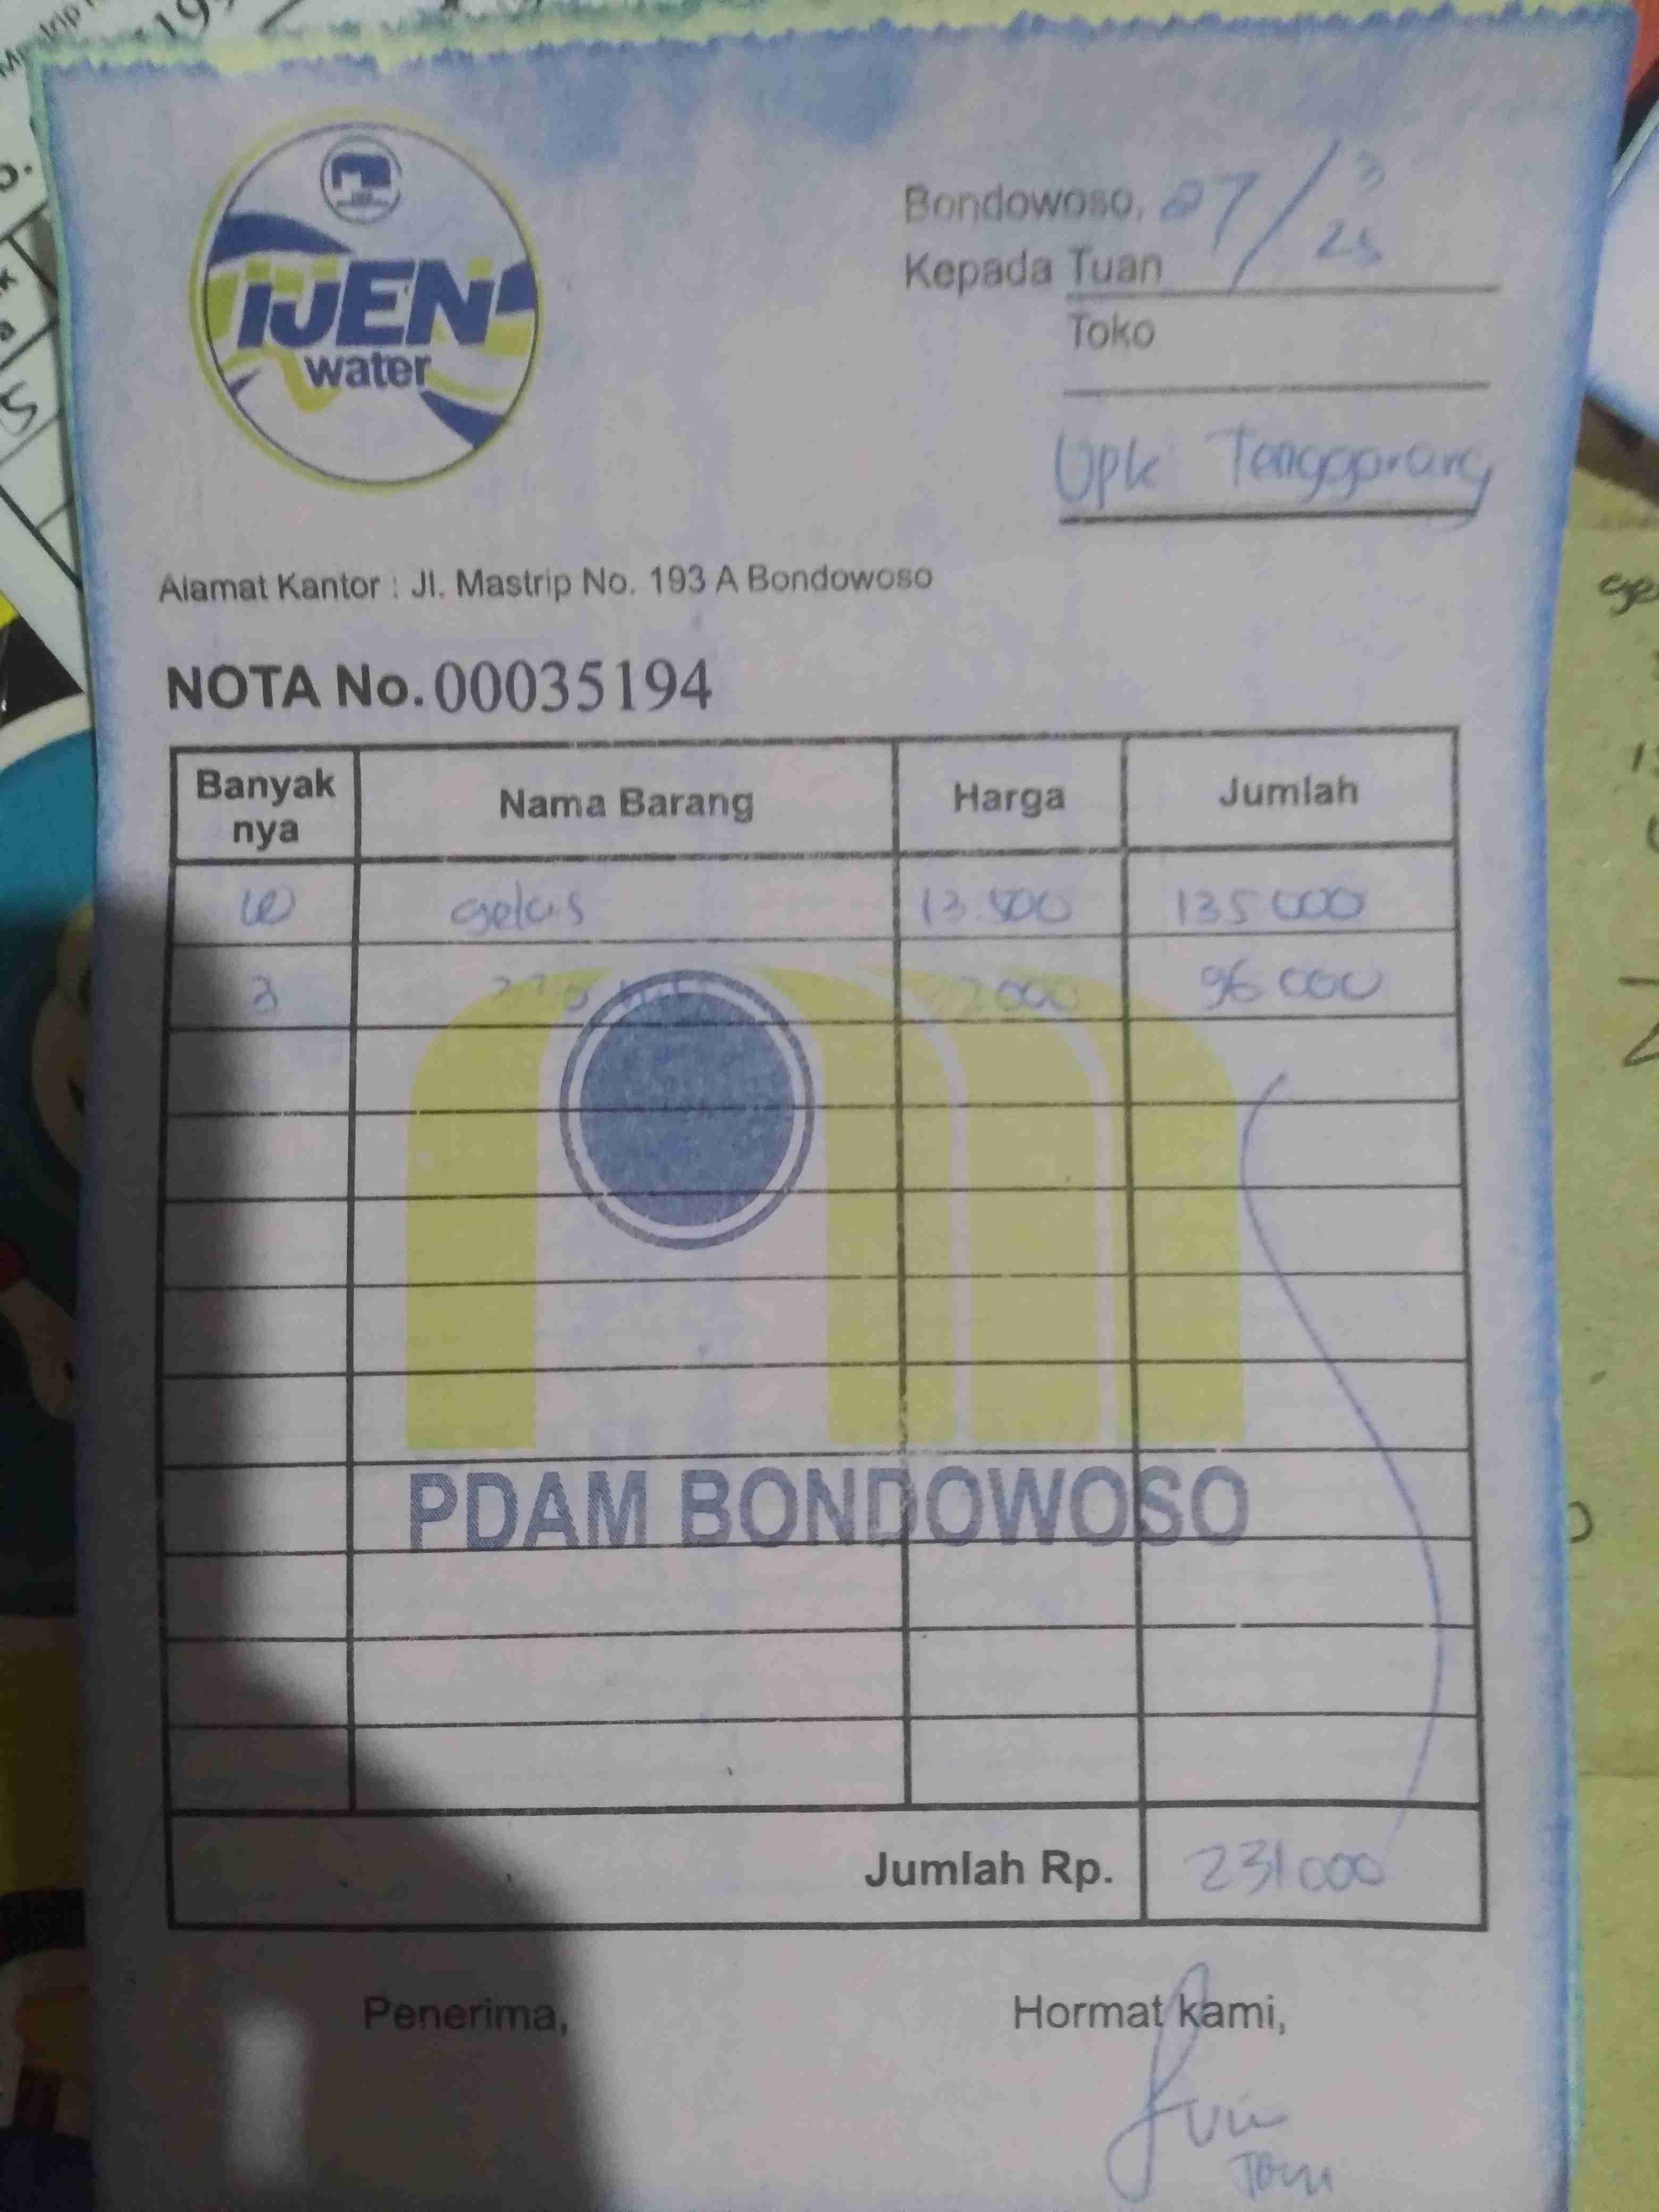 IJEN
water
Bondowoso, 27/3
25
Kepada Tuan
Toko
Upk Tenggarang
Alamat Kantor : Jl. Mastrip No. 193 A Bondowoso
NOTA No. 00035194
Banyak nya Nama Barang Harga Jumlah
10 gelas 13.500 135 000
3 2000 96 000
PDAM BONDOWOSO
Jumlah Rp. 231 000
Penerima, Hormat kami,